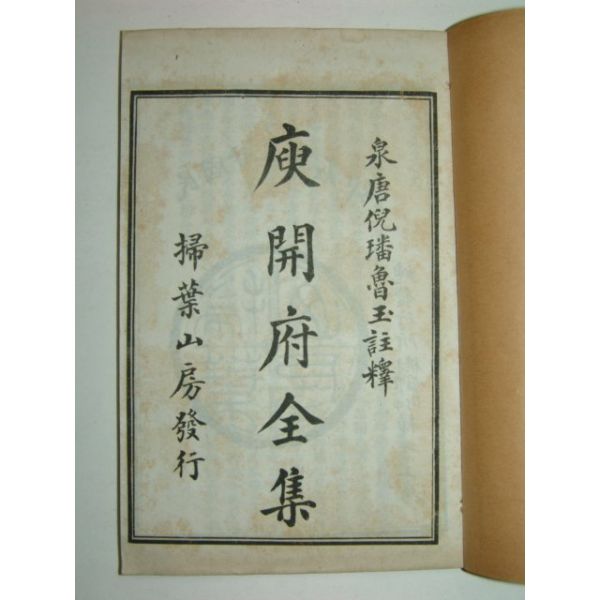 泉唐倪璠魯玉註釋
庾開府全集
掃葉山房發行